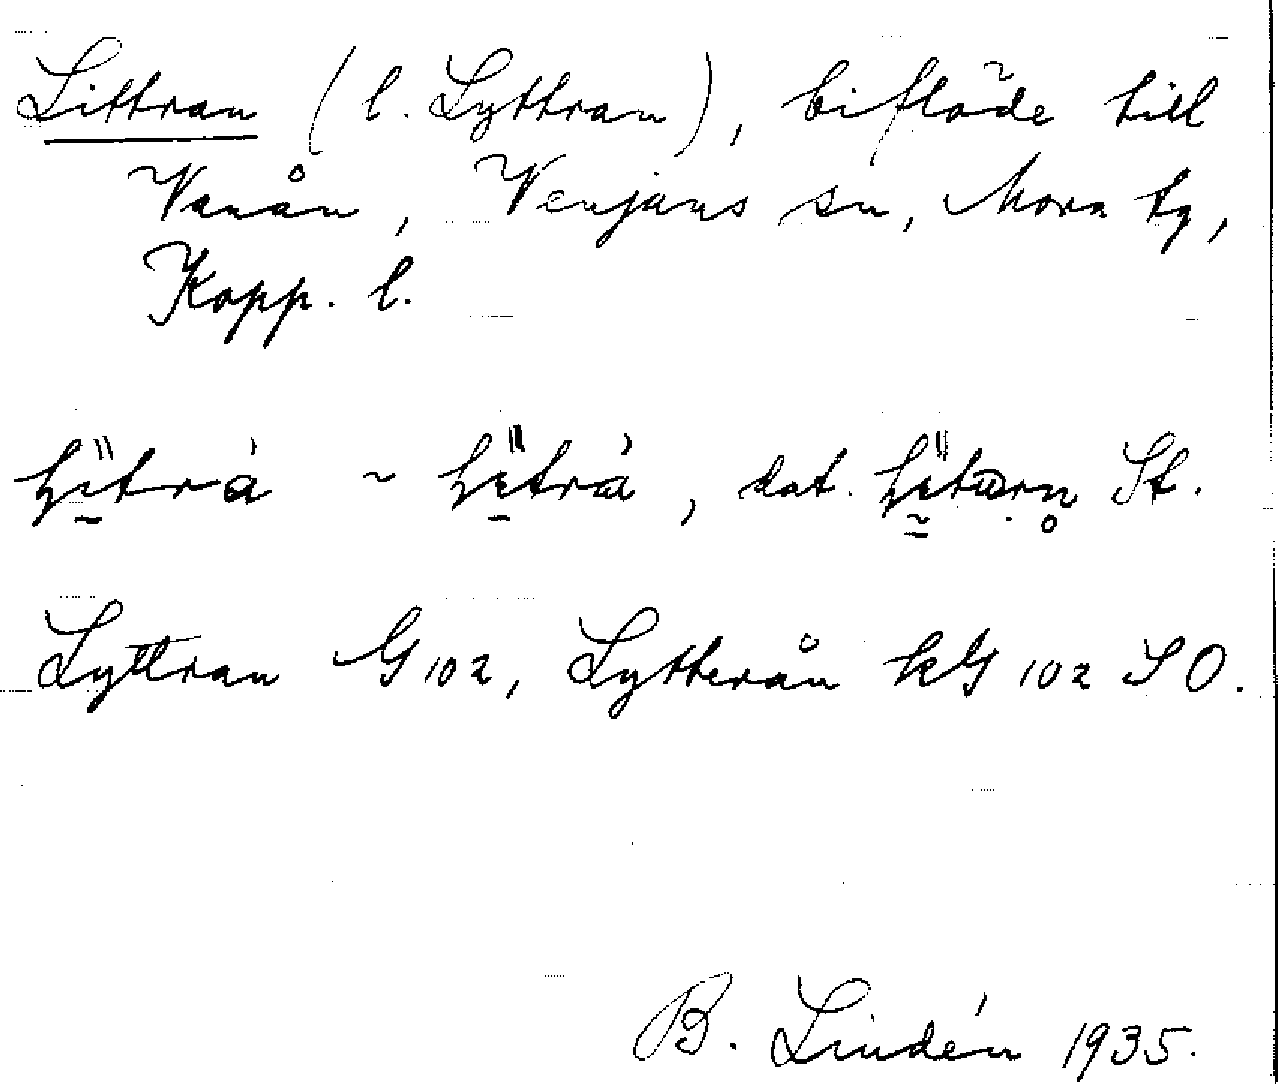 Littran (l. Lyttran), biflöde till
Vanån, Venjans sn, Mora tg,
Kopp. l.
~ , dat. St.
Lyttran G 102, Lytterån kG 102 SO.
B. Lindén 1935.